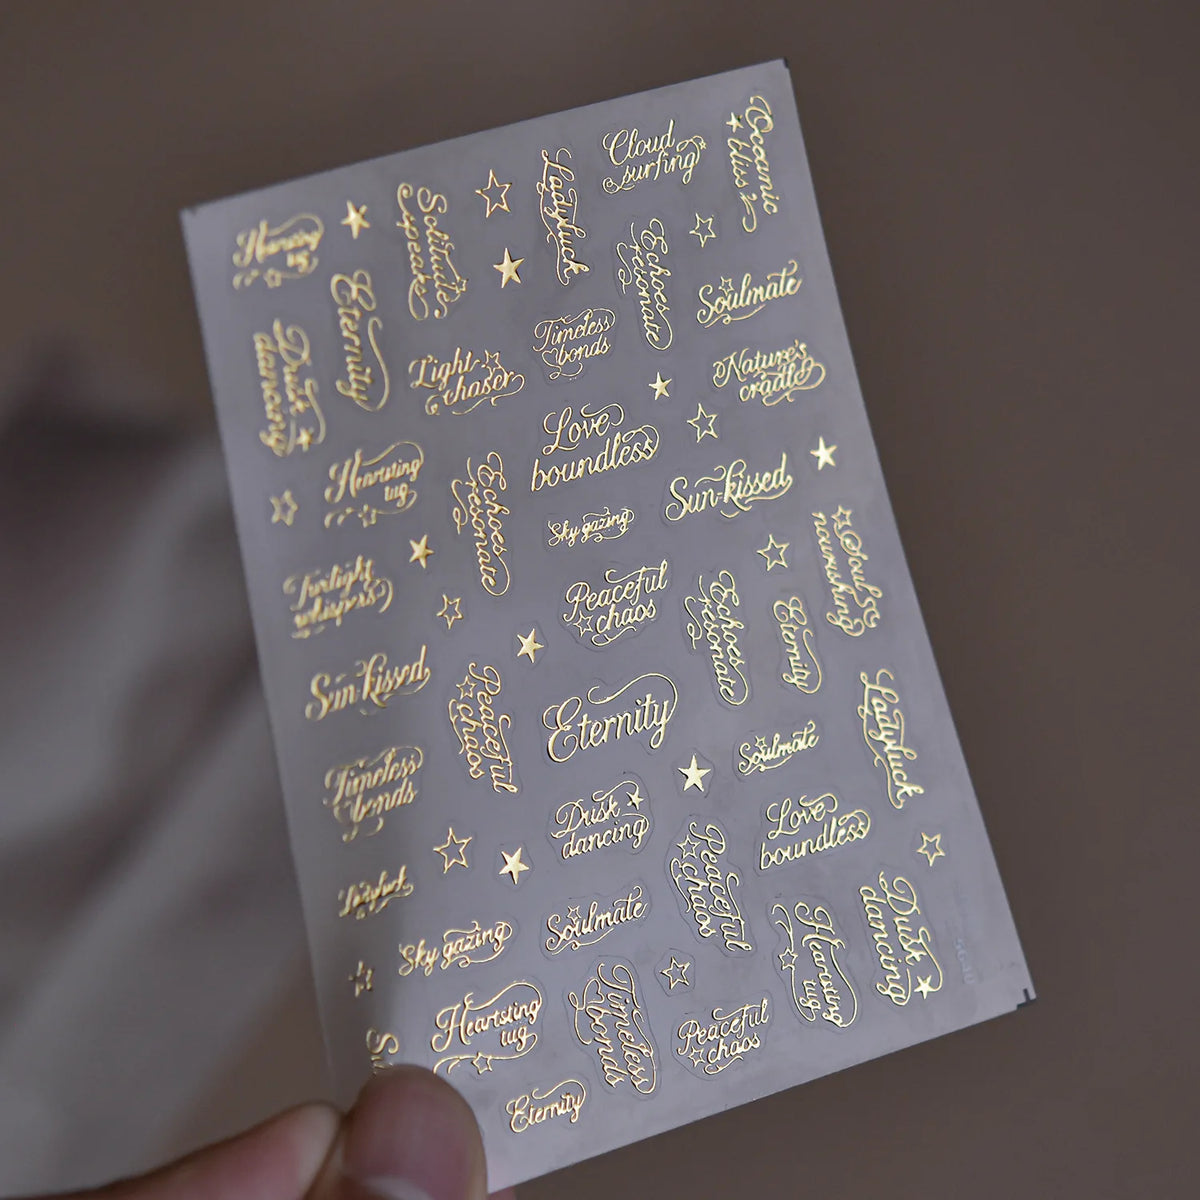 Cloud
surfing
Oceanic
bliss
Ladyluck
Solitude
speaks
Heartsting
tug
Eternity
Echoes
resonate
Soulmate
Timeless
bonds
Dusk
dancing
Light
chaser
Nature's
cradle
Love
boundless
Heartsting
tug
Echoes
resonate
Sun-kissed
Sky gazing
Soul
nourishing
Twilight
whispers
Peaceful
chaos
Echoes
resonate
Eternity
Sun-kissed
Peaceful
chaos
Eternity
Ladyluck
Soulmate
Timeless
bonds
Dusk
dancing
Love
boundless
Peaceful
chaos
Ladyluck
Soulmate
Dusk
dancing
Sky gazing
Heartsting
tug
Heartsting
tug
Timeless
bonds
Peaceful
chaos
Eternity